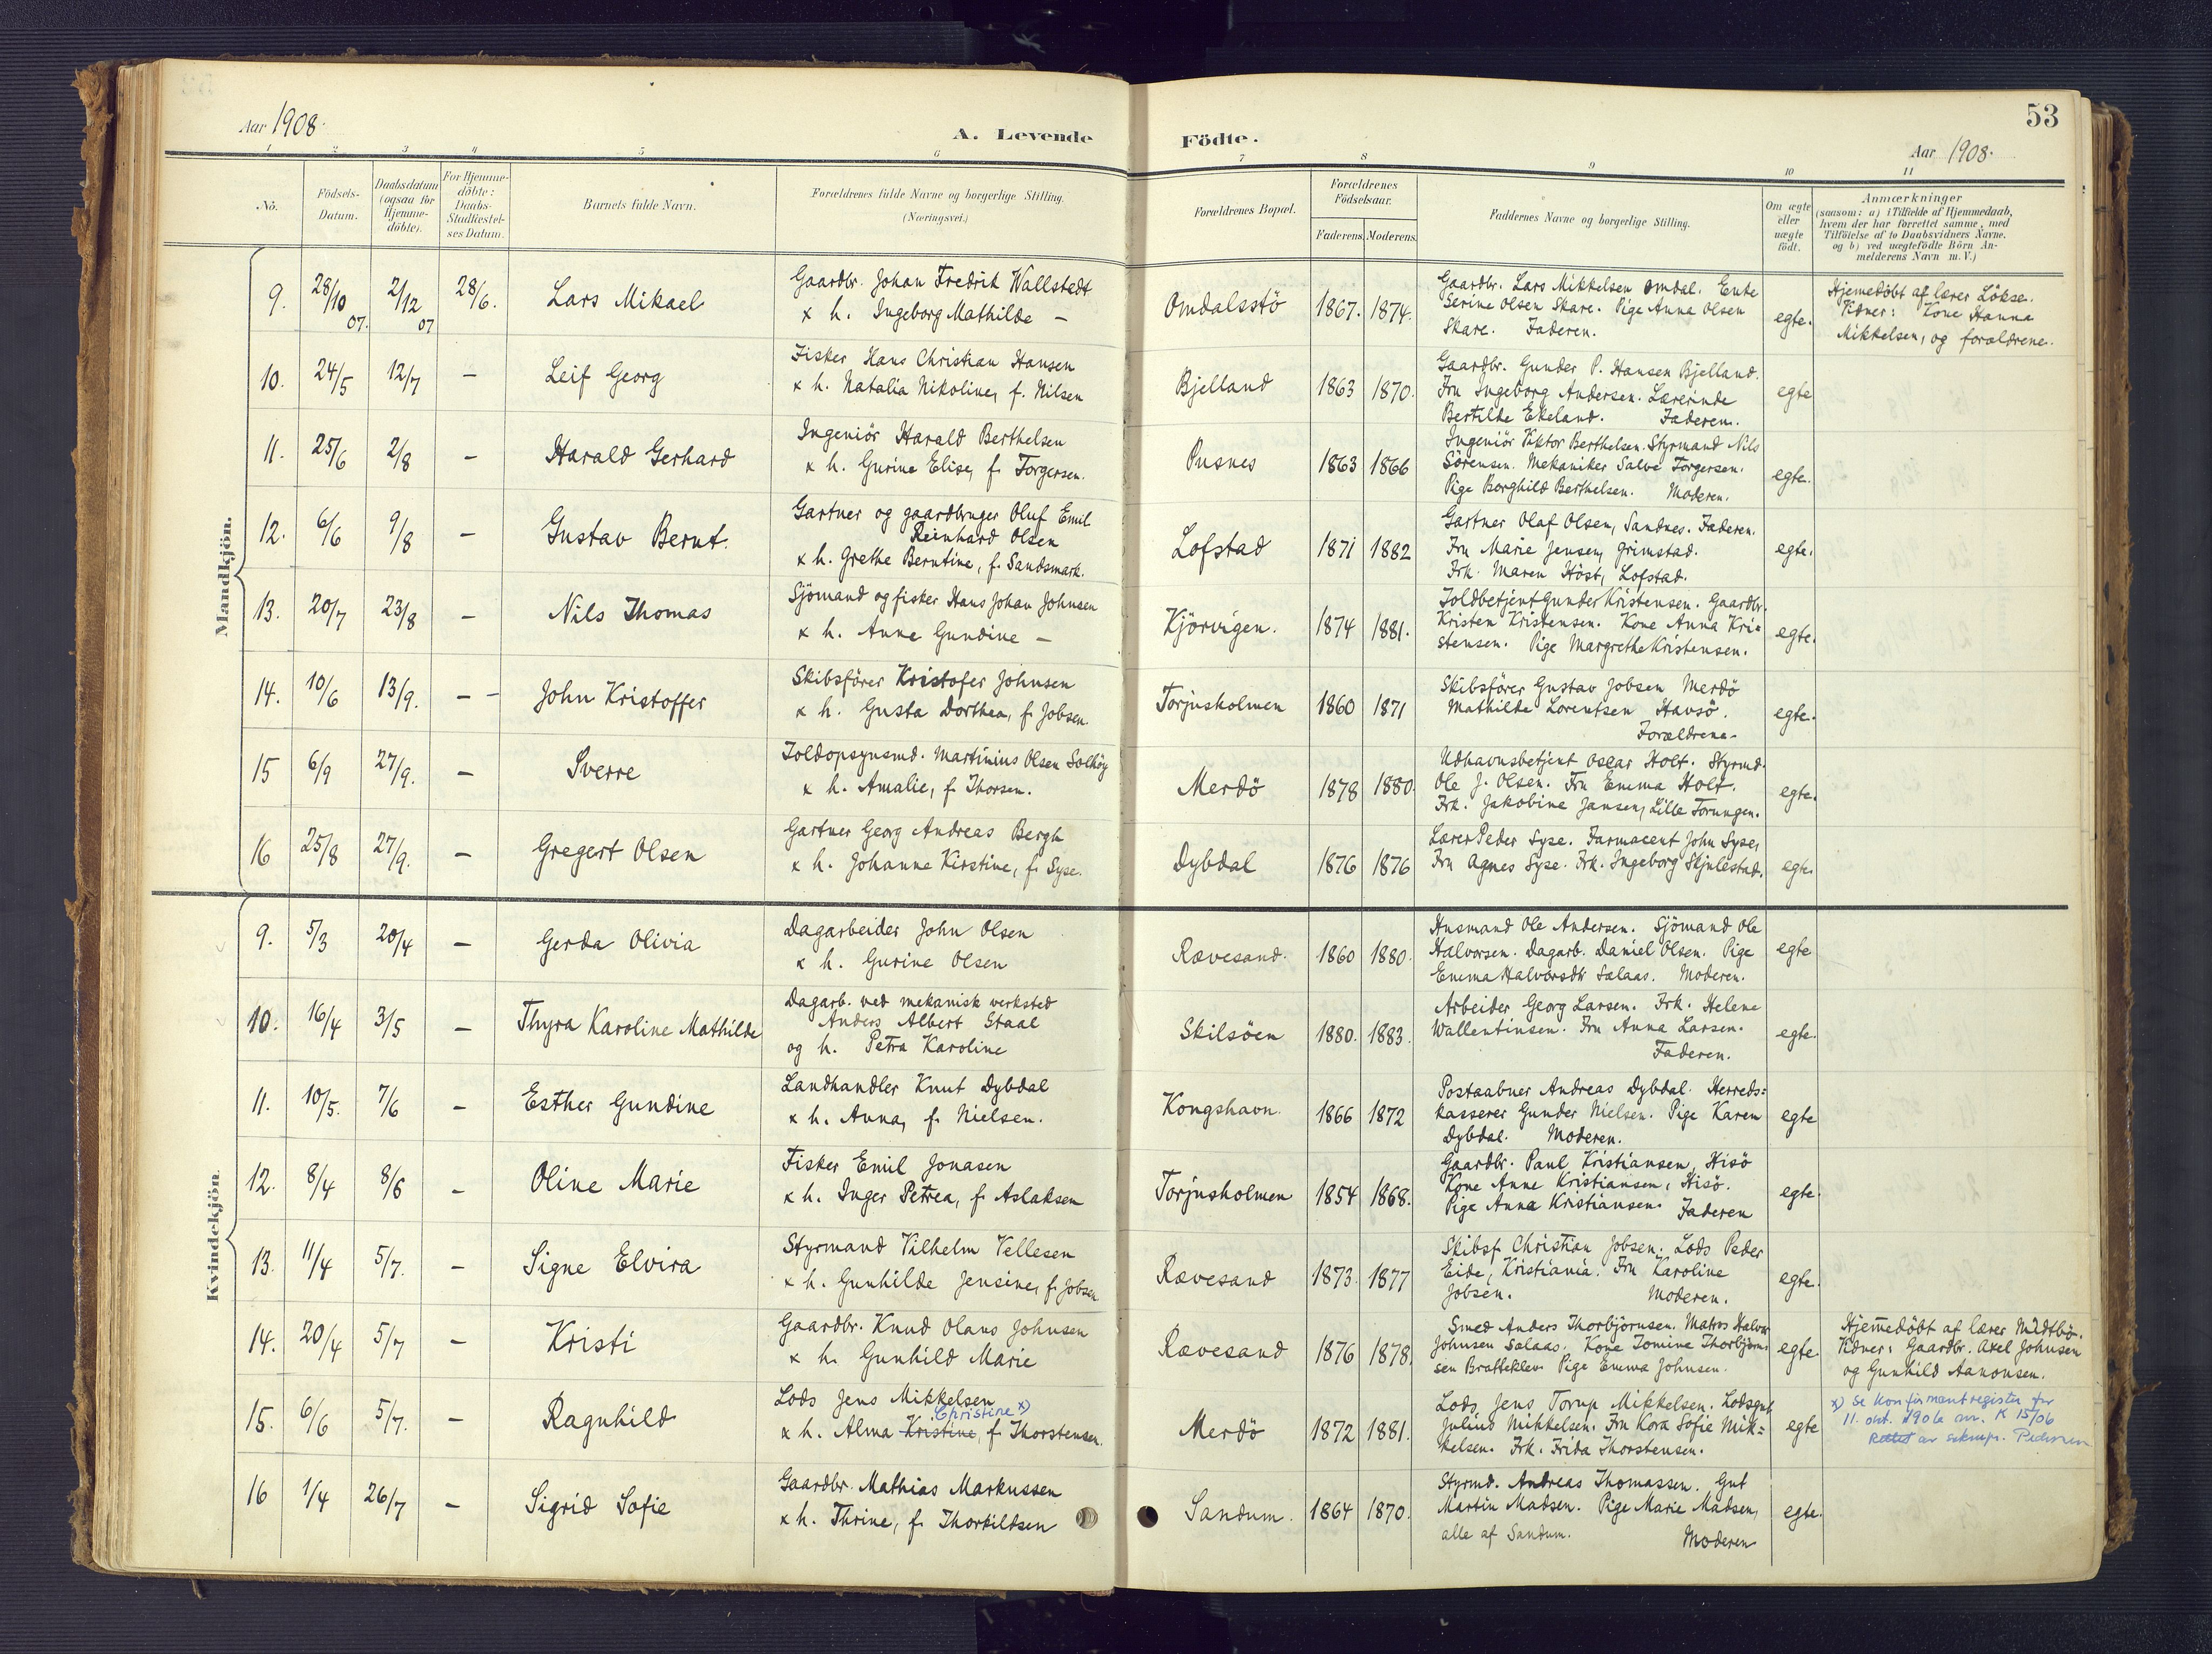 53
Aar 1908.
A. Levende Födte.
Aar 1908.
1 2 3 4 5 6 7 8 9 10 11
No.
Födsels-Datum.
Daabsdatum (ogsaa for Hjemme-döbte).
For Hjemme-döbte: Daabs-Stadfæstel-ses Datum.
Barnets fulde Navn.
Forældrenes fulde Navne og borgerlige Stilling.
(Næringsvei.)
Forældrenes Bopæl.
Forældrenes Födselsaar.
Faderens. Moderens.
Faddernes Navne og borgerlige Stilling.
Om ægte eller uægte födt.
Anmærkninger
(saasom: a) i Tilfælde af Hjemmedaab,
hvem der har forrettet samme, med
Tilföielse af to Daabsvidners Navne.
og b) ved uægtefödte Börn An-
melderens Navn m. V.)
Mandkjön.
9. 28/10 07. 2/12 07 28/6. Lars Mikael
Gaardbr. Johan Fredrik Wallstedt
x h. Ingeborg Mathilde —
Omdalsstö 1867. 1874.
Gaardbr. Lars Mikkelsen Omdal. Enke
Serine Olsen Skare. Pige Anna Olsen
Skare. Faderen.
egte.
Hjemedöbt af lærer Lökse.
Vidner: Kone Hanna
Mikkelsen, og forældrene.
10. 24/5 12/7 — Leif Georg
Fisker Hans Christian Hansen
x h. Natalia Nikoline, f. Nilsen
Bjelland 1863 1870.
Gaardbr. Gunder P. Hansen Bjelland.
Fru Ingeborg Andersen. Lærerinde
Bertilde Ekeland. Faderen.
egte
11. 25/6 2/8 — Harald Gerhard
Ingeniör Harald Berthelsen
x h. Gurine Elise, f. Torgersen.
Pusnes 1863 1866
Ingeniör Viktor Berthelsen. Styrmand Nils
Sörensen. Mekaniker Salve Torgersen.
Pige Borghild Berthelsen. Moderen.
egte.
12. 6/6 9/8 — Gustav Bernt.
Gartner og gaardbruger Oluf Emil
Reinhard Olsen
x h. Grethe Berntine, f. Sandsmark.
Lofstad 1871 1882
Gartner Olaf Olsen, Sandnes. Faderen.
Fru Marie Jensen, Grimstad.
Frk. Maren Höst, Lofstad.
egte.
13. 20/7 23/8 — Nils Thomas
Sjömand og fisker Hans Johan Johnsen
x h. Anne Gundine —
Kjörvigen. 1874 1881.
Toldbetjent Gunder Kristensen. Gaardbr.
Kristen Kristensen. Kone Anna Kri=
stensen. Pige Margrethe Kristensen.
egte.
14. 10/6 13/9. — — John Kristoffer
Skibsförer Kristofer Johnsen
x h. Gusta Dorthea, f. Jobsen
Torjusholmen 1860 1871
Skibsförer Gustav Jobsen Merdö
Mathilde Lorentsen Havsö.
Forældrene.
egte.
15 6/9 27/9. — Sverre
Toldopsynsmd. Martinius Olsen Solhög
x h. Amalie, f. Thorsen.
Merdö 1878 1880.
Udhavnsbetjent Oscar Holt. Styrmd.
Ole J. Olsen. Fru Emma Holt.
Frk. Jakobine Jansen, Lille Torungen.
egte.
16 25/8 27/9. — Gregert Olsen
Gartner Georg Andreas Bergh
x h. Johanne Kirstine, f. Syse.
Dybdal 1876 1876
Lærer Peder Syse. Farmaceut John Syse,
Fru Agnes Syse. Frk. Ingeborg Skjulestad.
egte.
Kvindekjön.
9. 5/3 20/4 — Gerda Olivia
Dagarbeider John Olsen
x h. Gurine Olsen
Rævesand. 1860 1880.
Husmand Ole Andersen. Sjömand Ole
Halvorsen. Dagarb. Daniel Olsen. Pige
Emma Halvorsdtr Salaas. Moderen.
egte
10. 16/4 3/5 — Thyra Karoline Mathilde
Dagarb. ved mekanisk verksted
Anders Albert Staal
og h. Petra Karoline
Skilsöen 1880. 1883.
Arbeider Georg Larsen. Frk. Helene
Wallentinsen. Fru Anna Larsen.
Faderen.
egte.
11. 10/5. 7/6 — Esther Gundine
Landhandler Knut Dybdal
x h. Anna, f. Nielsen.
Kongshavn. 1866 1872
Postaabner Andreas Dybdal. Herreds=
kasserer Gunder Nielsen. Pige Karen
Dybdal. Moderen.
egte
12. 8/4 8/6 — Oline Marie
Fisker Emil Jonasen
x h. Inger Petrea, f. Aslaksen
Torjusholmen 1854 1868.
Gaardbr. Paul Kristiansen, Hisö
Kone Anne Kristiansen, Hisö.
Pige Anna Kristiansen. Faderen
egte.
13. 11/4 5/7. — Signe Elvira
Styrmand Vilhelm Vellesen
x h. Gunhilde Jensine, f. Jobsen
Rævesand 1873. 1877
Skibsf. Christian Jobsen. Lods Peder
Eide, Kristiania. Fru Karoline
Jobsen. Moderen.
egte.
14. 20/4 5/7 — Kristi
Gaardbr. Knud Olaus Johnsen
x h. Gunhild Marie
Rævesand 1876 1878.
Smed Anders Thorbjörnsen. Matros Halvor
Johnsen Salaas. Kone Tomine Thorbjörn=
sen Bratteklev. Pige Emma Johnsen.
egte.
Hjemedöbt af lærer Midtbö.
Vidner: Gaardbr. Axel Johnsen
og Gunhild Aanonsen.
15. 6/6 5/7. — Ragnhild
Lods Jens Mikkelsen
Christine x)
x h. Alma Kristine, f. Thorstensen.
Merdö 1872 1881.
Lods Jens Torup Mikkelsen. Lodsgut
Julius Mikkelsen. Fru Kora Sofie Mik=
kelsen. Frk. Frida Thorstensen.
egte
x) Se konfirmantregister for
11. okt. 1906 nr. K 15/06
Rettet av Pedersen
16 1/4 26/7 — Sigrid Sofie
Gaardbr. Mathias Markussen
x h. Thrine, f. Thorkildsen
Sandum. 1864 1870.
Styrmd. Andreas Thomassen. Gut
Martin Madsen. Pige Marie Madsen,
alle af Sandum.
Moderen
egte.